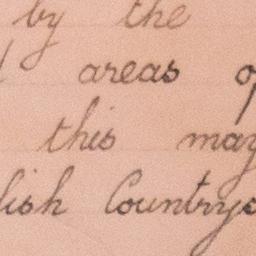 by the
areas
this may
lish Countrys